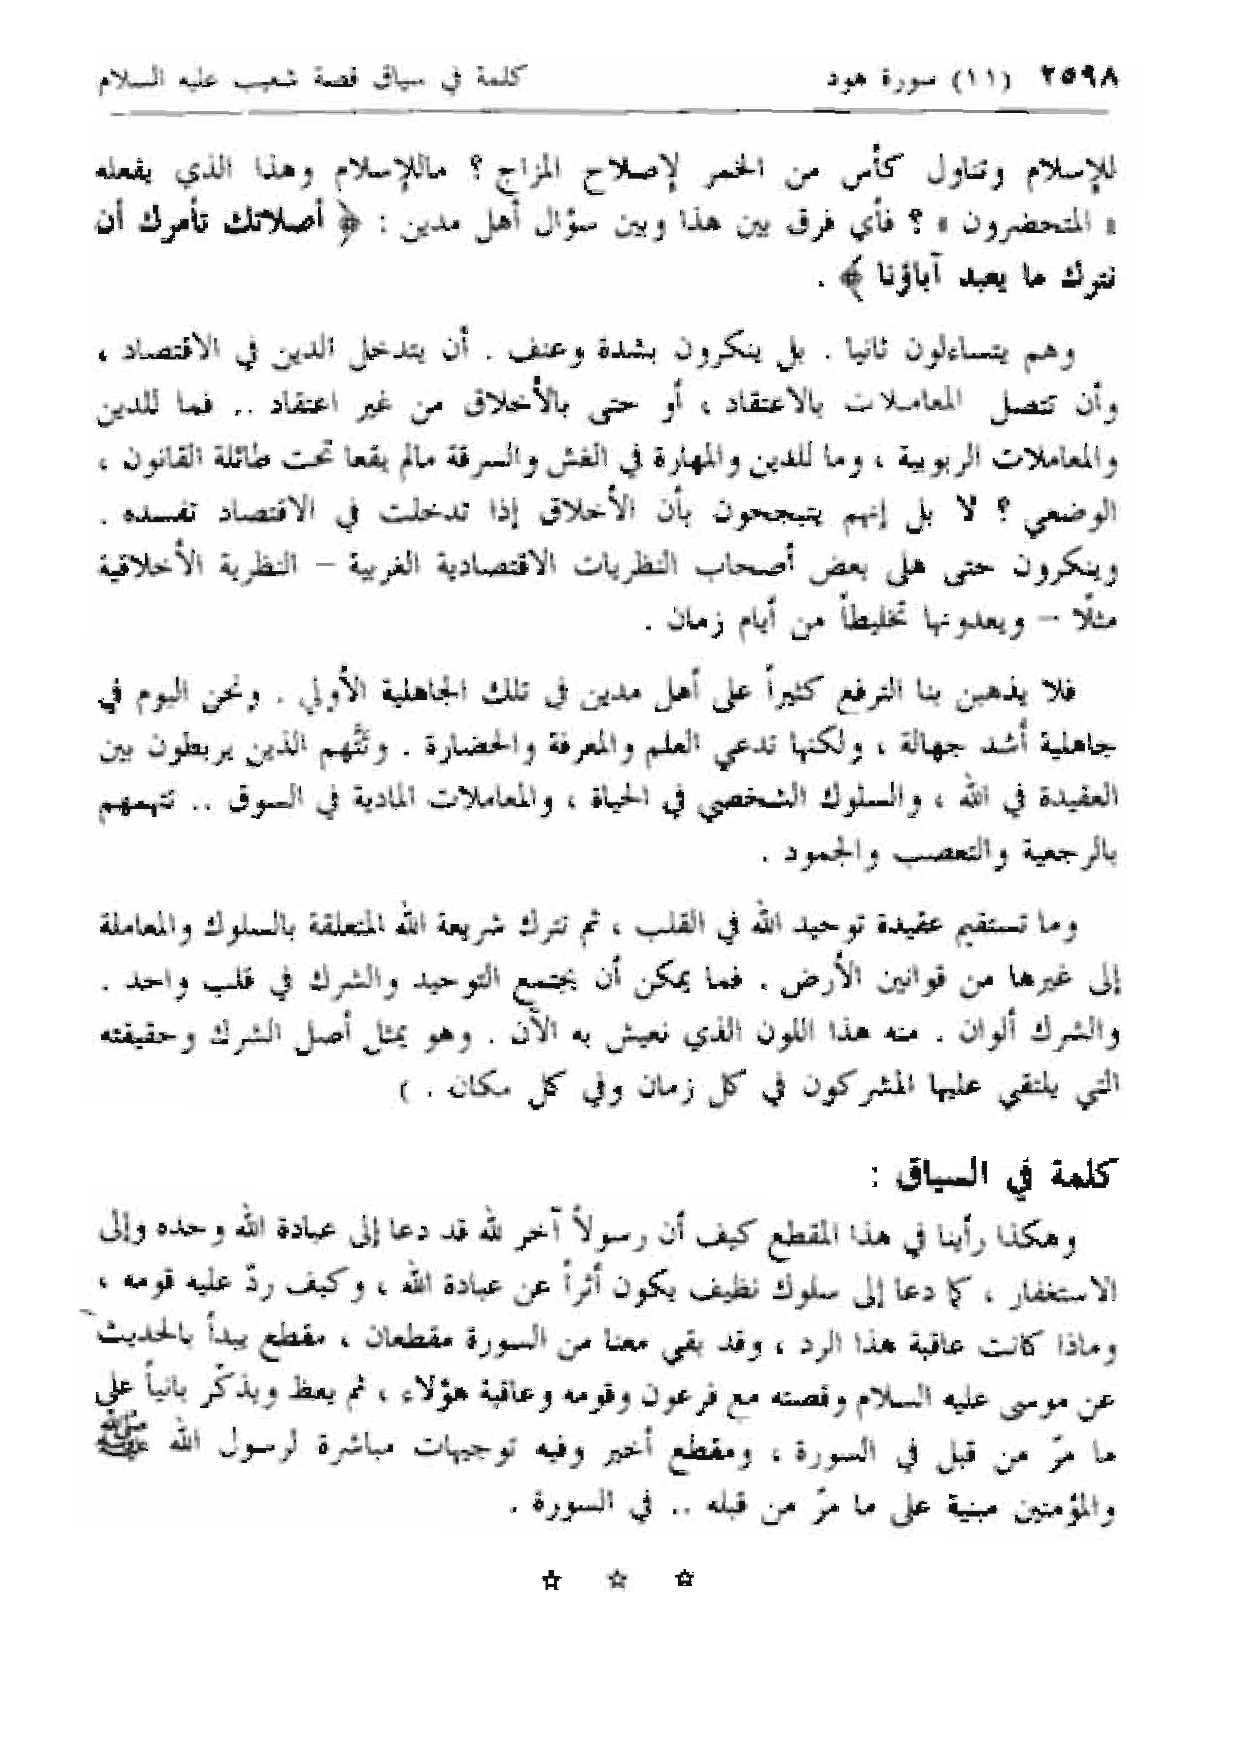 ٢٥٩٨ (١١) سورة هود كلمة في سياق قصة شعيب عليه السلام
للإسلام وتناول كأس من الخمر لإصلاح المزاج ؟ ماللإسلام وهذا الذي يفعله
« المتحضرون » ؟ فأي فرق بين هذا وبين سؤال أهل مدين : ﴿ أصلاتك تأمرك أن
نترك ما يعبد آباؤنا ﴾ .
وهم يتساءلون ثانيا . بل ينكرون بشدة وعنف . أن يتدخل الدين في الاقتصاد ،
وأن تتصل المعاملات بالاعتقاد ، أو حتى بالأخلاق من غير اعتقاد .. فما للدين
والمعاملات الربوبية ، وما للدين والمهارة في الغش والسرقة مالم يقعا تحت طائلة القانون ،
الوضعي ؟ لا بل إنهم يتبجحون بأن الأخلاق إذا تدخلت في الاقتصاد تفسده .
وينكرون حتى هلى بعض أصحاب النظريات الاقتصادية الغربية – النظرية الأخلاقية
مثلًا – ويعدونها تخليطاً من أيام زمان .
فلا يذهبن بنا الترفع كثيراً على أهل مدين في تلك الجاهلية الأولي . ونحن اليوم في
جاهلية أشد جهالة ، ولكنها تدعي العلم والمعرفة والحضارة . وتَّتهم الذين يربطون بين
العقيدة في الله ، والسلوك الشخصي في الحياة ، والمعاملات المادية في السوق .. تتهمهم
بالرجعية والتعصب والجمود .
وما تستقيم عقيدة توحيد الله في القلب ، ثم تترك شريعة الله المتعلقة بالسلوك والمعاملة
إلى غيرها من قوانين الأرض . فما يمكن أن يجتمع التوحيد والشرك في قلب واحد .
والشرك ألوان . منه هذا اللون الذي نعيش به الآن . وهو يمثل أصل الشرك وحقيقته
التي يلتقي عليها المشركون في كل زمان وفي كل مكان . )
كلمة في السياق :
وهكذا رأينا في هذا المقطع كيف أن رسولاً آخر لله قد دعا إلى عبادة الله وحده وإلى
الاستغفار ، كما دعا إلى سلوك نظيف يكون أثراً عن عبادة الله ، وكيف ردّ عليه قومه ،
وماذا كانت عاقبة هذا الرد ، وقد بقي معنا من السورة مقطعان ، مقطع يبدأ بالحديث
عن موسى عليه السلام وقصته مع فرعون وقومه وعاقبة هؤلاء ، ثم يعظ ويذكّر بانياً على
ما مرّ من قبل في السورة ، ومقطع أخير وفيه توجيهات مباشرة لرسول الله ﷺ
والمؤمنين مبنية على ما مرّ من قبله .. في السورة .
☆ ☆ ☆